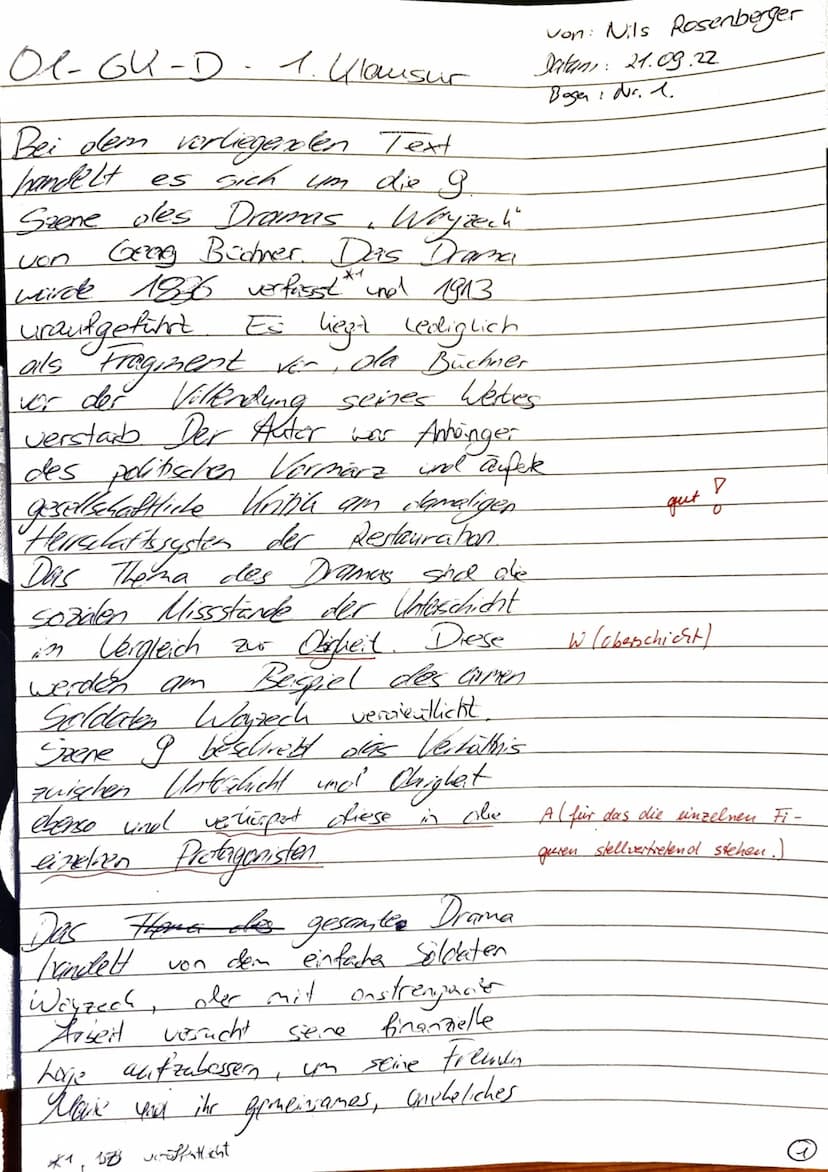 von: Nils Rosenberger
Q1-GK-D - 1. Klausur
Datum: 21.09.22
Bogen: Nr. 1.
Bei dem vorliegenden Text
handelt es sich um die 9.
Szene des Dramas „Woyzeck“
von Georg Büchner. Das Drama
wurde 1836 verfasst *1 und 1913
uraufgeführt. Es liegt lediglich
als Fragment vor, da Büchner
vor der Vollendung seines Werkes
verstarb. Der Autor war Anhänger
des politischen Vormärz und äußerte
gesellschaftliche Kritik am damaligen
gut!
Herrschaftssystem der Restauration.
Das Thema des Dramas sind die
sozialen Missstände der Unterschicht
im Vergleich zur Obrigkeit. Diese
W (Oberschicht)
werden am Beispiel des armen
Soldaten Woyzeck verdeutlicht.
Szene 9 beschreibt das Verhältnis
zwischen Unterschicht und Obrigkeit
ebenso und verkörpert diese in die
A (für das die einzelnen Fi-
einzelnen Protagonisten
guren stellvertretend stehen.)
Das Thema des gesamte Drama
handelt von dem einfachen Soldaten
Woyzeck, der mit anstrengender
Arbeit versucht seine finanzielle
Lage aufzubessern, um seine Freundin
Marie und ihr gemeinsames, uneheliches
*1, veröffentlicht
1